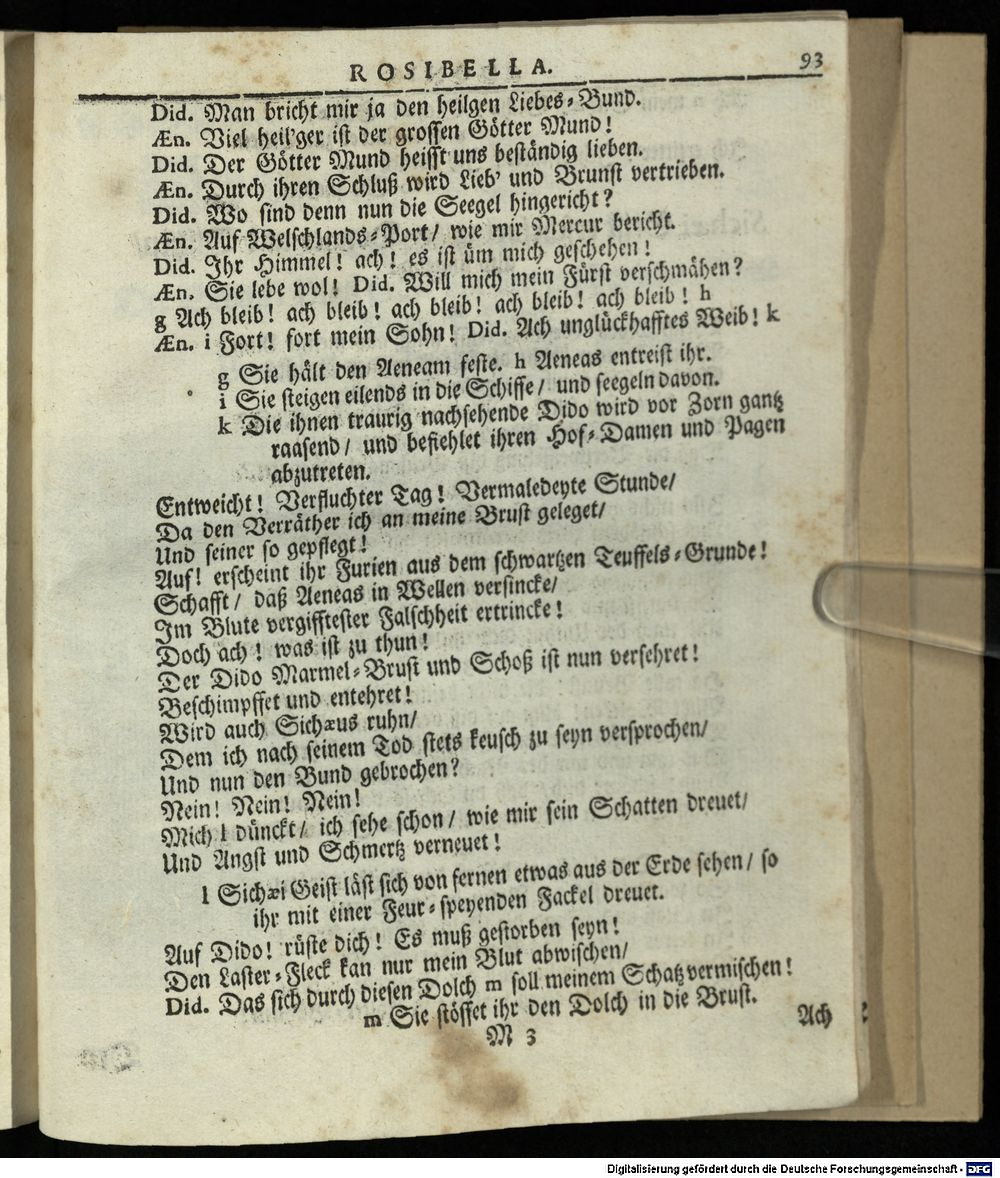 ROSIBELLA. 93
Did. Man bricht mir ja den heilgen Liebes-Bund.
Æn. Viel heil'ger ist der grossen Götter Mund!
Did. Der Götter Mund heisst uns beständig lieben.
Æn. Durch ihren Schluß wird Lieb' und Brunst vertrieben.
Did. Wo sind denn nun die Seegel hingericht?
Æn. Auf Welschlands-Port/ wie mir Mercur bericht.
Did. Ihr Himmel! ach! es ist üm mich geschehen!
Æn. Sie lebe wol! Did. Will mich mein Fürst verschmähen?
g Ach bleib! ach bleib! ach bleib! ach bleib! ach bleib! h
Æn. i Fort! fort mein Sohn! Did. Ach unglückhafftes Weib! k
g Sie hält den Aeneam feste. h Aeneas entreist ihr.
i Sie steigen eilends in die Schiffe/ und seegeln davon.
k Die ihnen traurig nachsehende Dido wird vor Zorn gantz
raasend/ und befiehlet ihren Hof-Damen und Pagen
abzutreten.
Entweicht! Verfluchter Tag! Vermaledeyte Stunde/
Da den Verräther ich an meine Brust geleget/
Und seiner so gepflegt!
Auf! erscheint ihr Furien aus dem schwartzen Teuffels-Grunde!
Schafft/ daß Aeneas in Wellen versincke/
Im Blute vergifftester Falschheit ertrincke!
Doch ach! was ist zu thun!
Der Dido Marmel-Brust und Schoß ist nun versehret!
Beschimpffet und entehret!
Wird auch Sichæus ruhn/
Dem ich nach seinem Tod stets keusch zu seyn versprochen/
Und nun den Bund gebrochen?
Nein! Nein! Nein!
Mich l dünckt/ ich sehe schon/ wie mir sein Schatten dreuet/
Und Angst und Schmertz verneuet!
l Sichæi Geist läst sich von fernen etwas aus der Erde sehen/ so
ihr mit einer Feur-speyenden Fackel dreuet.
Auf Dido! rüste dich! Es muß gestorben seyn!
Den Laster-Fleck kan nur mein Blut abwischen/
Did. Das sich durch diesen Dolch m soll meinem Schatz vermischen!
m Sie stösset ihr den Dolch in die Brust.
M 3 Ach
Digitalisierung gefördert durch die Deutsche Forschungsgemeinschaft - DFG